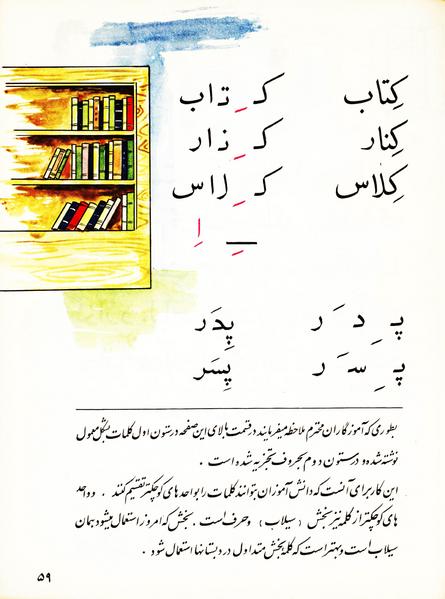 کِتاب کـ ـِ تـ ا ب
کِنار کـ ـِ نـ ا ر
کِلاس کـ ـِ لـ ا س
ـِ اِ
پـ ـِ د ـَ ر پِدَر
پـ ـِ سـ ـَ ر پِسَر
بطوری که آموزگاران محترم ملاحظه میفرمایند در قسمت بالای این صفحه در ستون اول کلمات بشکل معمول
نوشته شده و در ستون دوم بحروف تجزیه شده است .
این کار برای آنست که دانش آموزان بتوانند کلمات را بواحد های کوچکتر تقسیم کنند . واحد
های کوچکتر از کلمه نیز بخش ( سیلاب ) و حرف است . بخش که امروز استعمال میشود همان
سیلاب است و بهتر است که کلمه بخش متداول در دبستانها استعمال شود .
۵۹